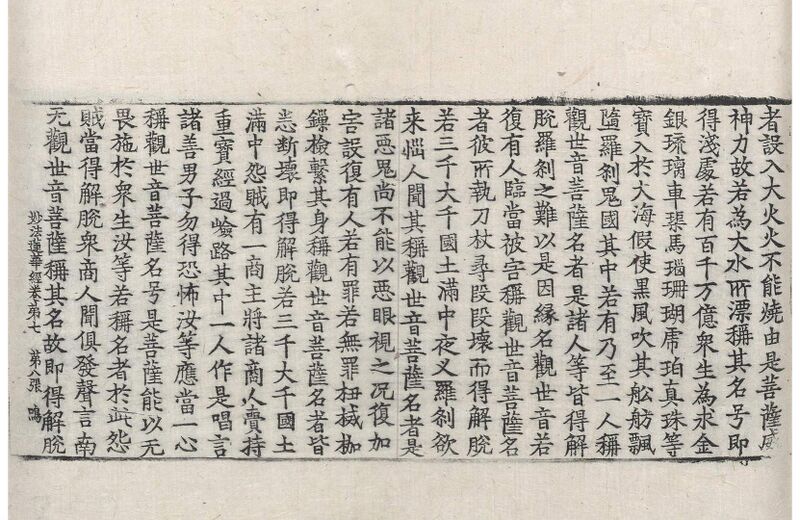 者設入大火火不能燒由是菩薩威
神力故若為大水所漂稱其名号即
得淺處若有百千万億衆生為求金
銀琉璃車璖馬瑙珊瑚虎珀真珠等
寶入於大海假使黑風吹其舩舫飄
墮羅刹鬼國其中若有乃至一人稱
觀世音菩薩名者是諸人等皆得解
脫羅刹之難以是因緣名觀世音若
復有人臨當被害稱觀世音菩薩名
者彼所執刀杖尋段段壞而得解脫
若三千大千國土滿中夜叉羅刹欲
来惱人聞其稱觀世音菩薩名者是
諸惡鬼尚不能以惡眼視之况復加
害設復有人若有罪若無罪杻械枷
鏁撿繫其身稱觀世音菩薩名者皆
悉斷壞即得解脫若三千大千國土
滿中怨賊有一商主將諸商人賷持
重寶經過嶮路其中一人作是唱言
諸善男子勿得恐怖汝等應當一心
稱觀世音菩薩名号是菩薩能以无
畏施於衆生汝等若稱名者於此怨
賊當得解脫衆商人聞俱發聲言南
无觀世音菩薩稱其名故即得解脫
妙法蓮華經卷第七 第八張 鳴